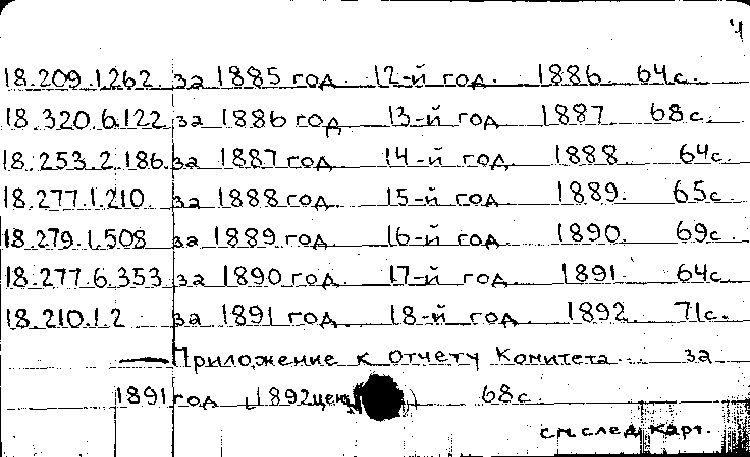 4
18.209.1.262 за 1885 год. 12-й год. 1886. 64с.
18.320.6.122 за 1886 год 13-й год 1887. 68с.
18.253.2.186 за 1887 год 14-й год. 1888. 64с.
18.277.1.210 за 1888 год. 15-й год. 1889. 65с
18.279.1.508 за 1889 год. 16-й год. 1890. 69с.
18.277.6.353 за 1890 год. 17-й год. 1891. 64с
18.210.1.2 за 1891 год. 18-й год. 1892. 71с.
— Приложение к отчету Комитета... за
1891 год (1892 68с.
см. след. карт.